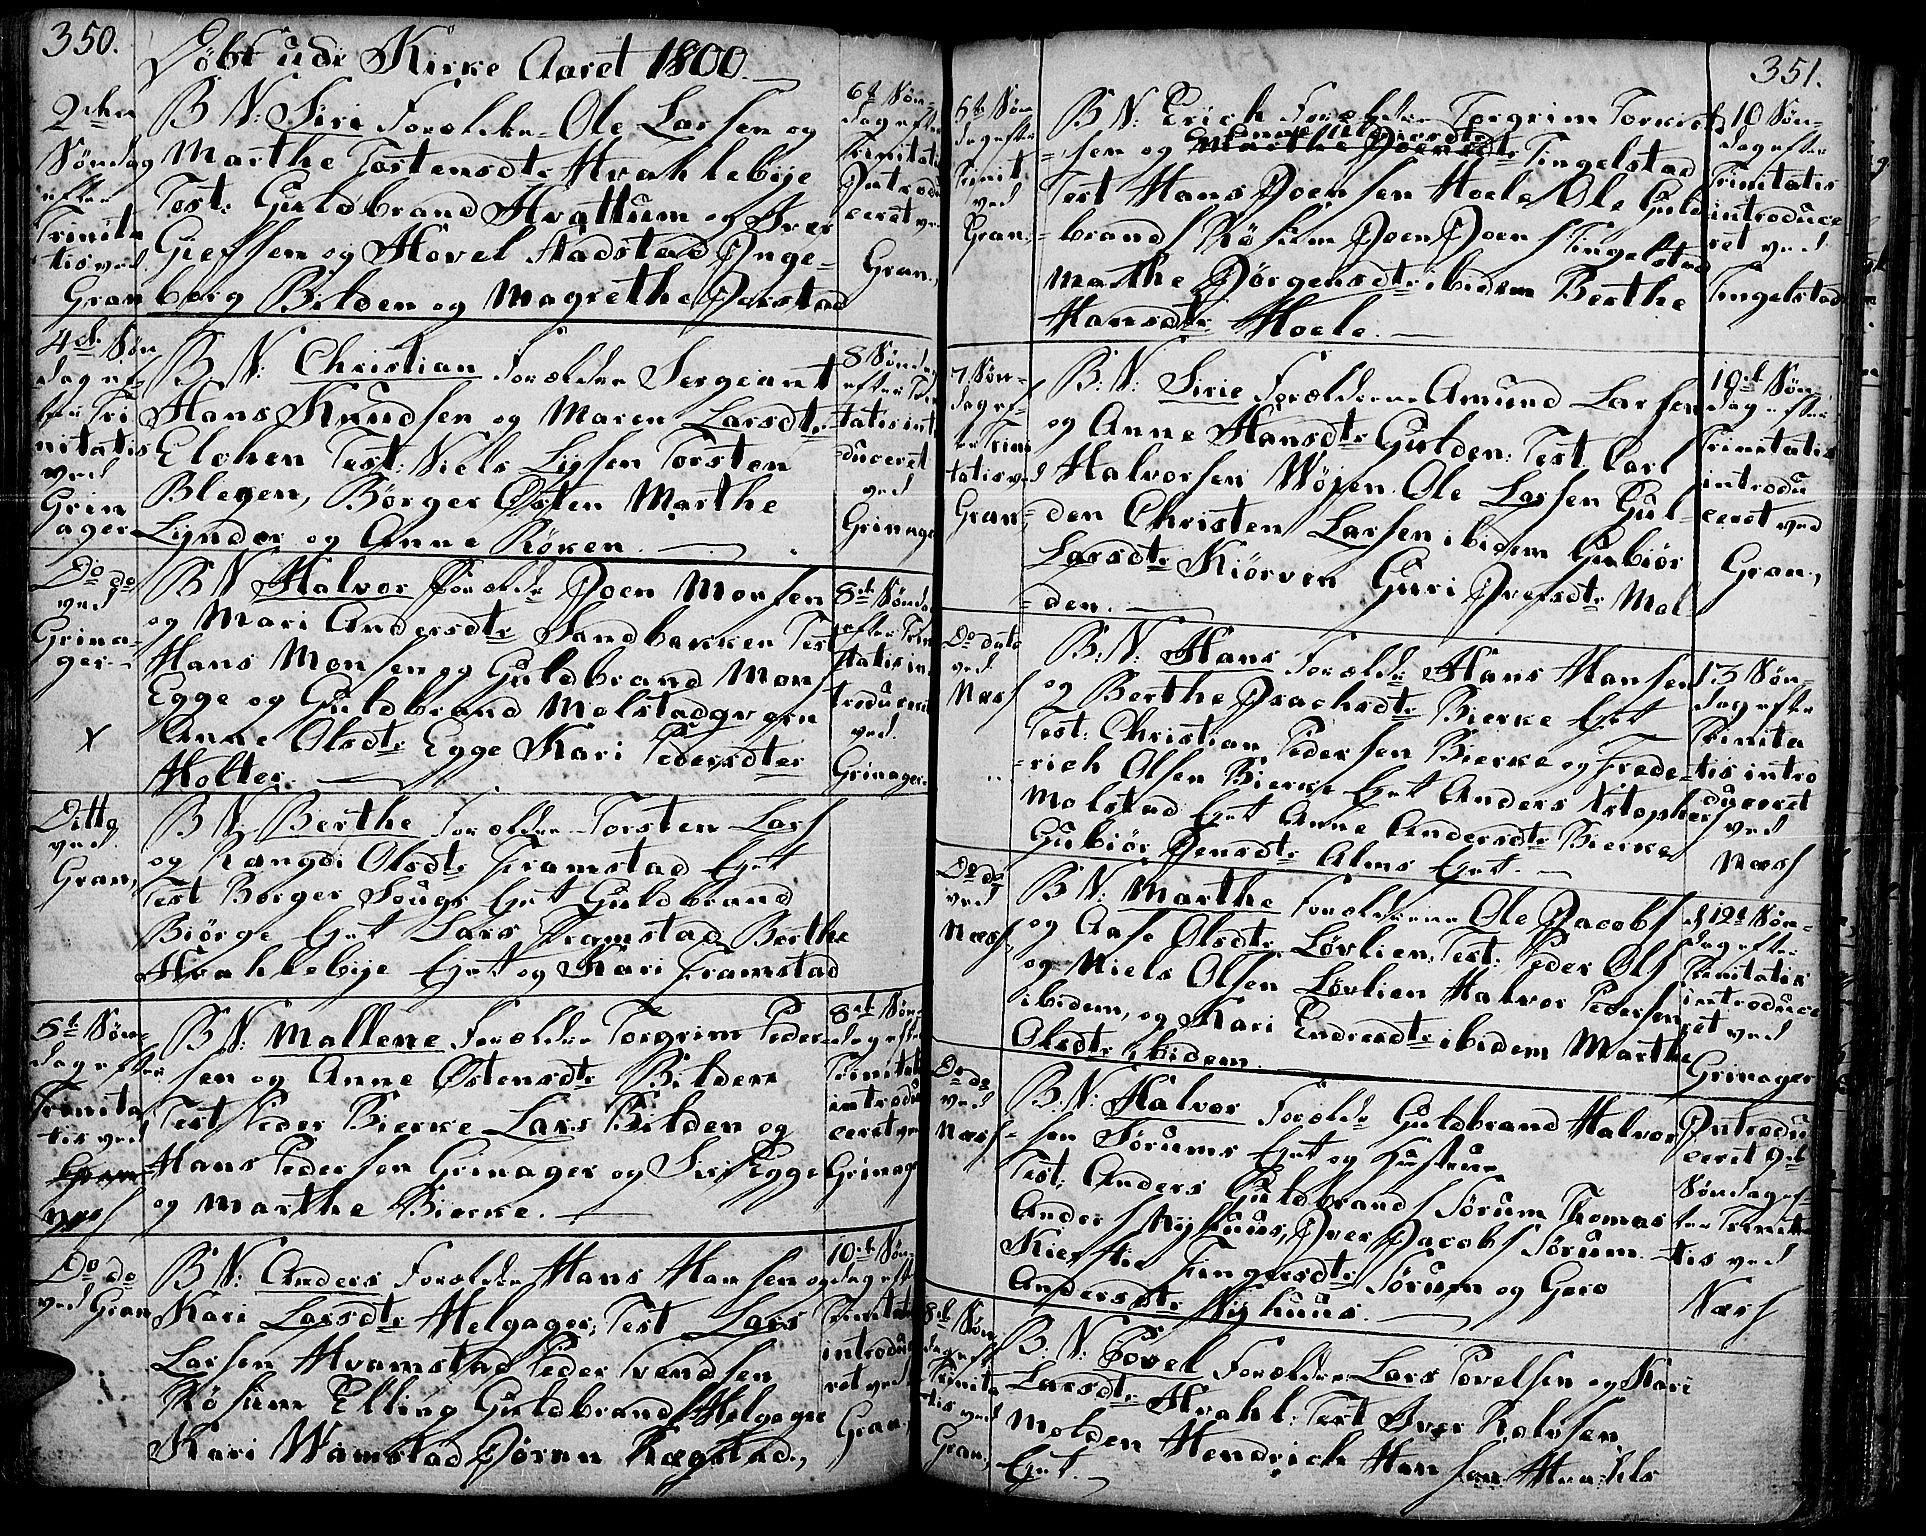 350.
Döbt udi Kirke Aaret 1800.
2den
Søndag
efter
Trinita
tis ved
Gran
B N: Siri Forældre Ole Larsen og
Marthe Tostensdtr Hvahlebÿe
Test: Guldbrand Hvattum og Iver
og Hovel Stadstad Inge-
borg Bilden og Magrethe
6t Søn-
dag efter
Trinitatis
Introdu
ceret ved
Gran,
4de Søn
dag ef
ter Tri
nitatis
ved
Grin
ager
B N: Christian Forældre Sergiant
Hans Knudsen og Maren Larsdtr
Test: Niels Torsten
Blegen, Børger Østen Marthe
Lÿnder og Anne Røken.
8 Sønda
efter Tri
tatis int
duceret
ved
Grinage
Do do
ved
Grina-
ger
X
B N Halvor Forældr Joen Monsen
og Mari Andersdtr Sandbakken Test
Hans Monsen og Guldbrand Mons
Egge og Guldbrand Molstad
Anne Olsdtr Egge Kari Pedersdter
Holter.
8de Sønda
efter Trin
itatis in
troduceret
ved
Grinager
Ditto
ved
Gran,
B N Berthe Forældre Torsten Lars
og Rangdi Olsdtr Framstad Eiet
Test Borger Eiet Guldbrand
Biørge Eiet Lars Framstad Berthe
Hvahlebÿe Eiet og Kari Framstad
5t Søn
dag efter
Trinita
tis ved
Gran
Næss
B N: Mallene Forældre Torgrim Peder-
sen og Anne Østensdtr Bilden
Test Peder Bierke Lars Bilden og
Hans Pedersen Grinager og Siri Egge
og Marthe Bierke.
8de Søn-
dag efter
Trinitati
introdu
ceret ved
Grinage
Do do
ved Gran
B N: Anders Forældre Hans Hansen og
Kari Larsdtr Helgager, Test Lars
Larsen Hvamstad Peder Svendsen
Røsum Elling Guldbrands Helgager
Kari Wamstad Jöran Rægstad,
10de Søn
dag efter
Trinitatis
introdu
ret ved
Gran,
351.
6t Søn
dag efter
Trinit.
ved
Gran.
B N: Erich Forældre Torgrim Torkild
-sen og Marthe Joensdtr Tingelstad
Test Hans Joensen Hoele Ole Guld
-brands Røsum Joen Joens Tingelstad
Marthe Jörgensdtr ibidem Berthe
Hansdtr Hoele.
10 Søn-
dag efter
Trinitatis
introduce
ret ved
Tingelstad
7 Søn-
dag ef-
ter Trini
tatis ved
Gran,
B: N: Sirie Forældrene Amund Larsen
og Anne Hansdtr Gulden: Test: Carl
Halvorsen Wøjen. Ole Larsen Gul-
den Christen Larsen ibidem Gubiør
Larsdtr Kiørven Guri Mol
-den.
10de Søn-
dag efter
Trinitatis
introdu
ceret ved
Gran,
Do dato
ved
Næss
B: N: Hans Forældr Hans Hansen
og Berthe Isachsdtr Bierke Eiet
Test: Christian Pedersen Bierke og Frede-
-rich Olsen Bierke Eiet Anders Xstophers
Molstad Eiet Anne Andersdtr Bierke
Gubiör Jensdtr Alms Eiet.
13 Søn-
dag efter
Trinita
tis intro
duceret
ved
Næss
Do do
ved
Næss
B N: Marthe Forældrene Ole Jacobs
og Aase Olsdtr Lövlien, Test: Peder Ols
og Niels Olsen Lövlien Halvor Pedersen
ibidem, og Kari Endresdtr ibidem Marthe
Olsdtr ibidem.
d 12t Søn-
dag efter
Trinitatis
introduce
ret ved
Grinager
Do do
ved
Næss
B: N: Halvor Forældr Guldbrand Halvor
-sen Sørums Eiet og Hustrue
Test: Anders Guldbrands Sørum Thomas
Anders Nÿhuus, Iver Jacobs Sørum
Kiersti Fingersdtr Sørum og Goro
Andersdtr Nÿhuus.
Introdu
ceret 9de
Søndag ef-
ter Trinit
tis ved
Næss
8de Søn
dag eft
Trinita
tis ved
Gran,
B. N: Povel Forældre Lars Povelsen og Kari
Larsdtr Hvahl: Test Iver Rolvsen
Molden Hendrich Hansen Hvahls
Eiet.